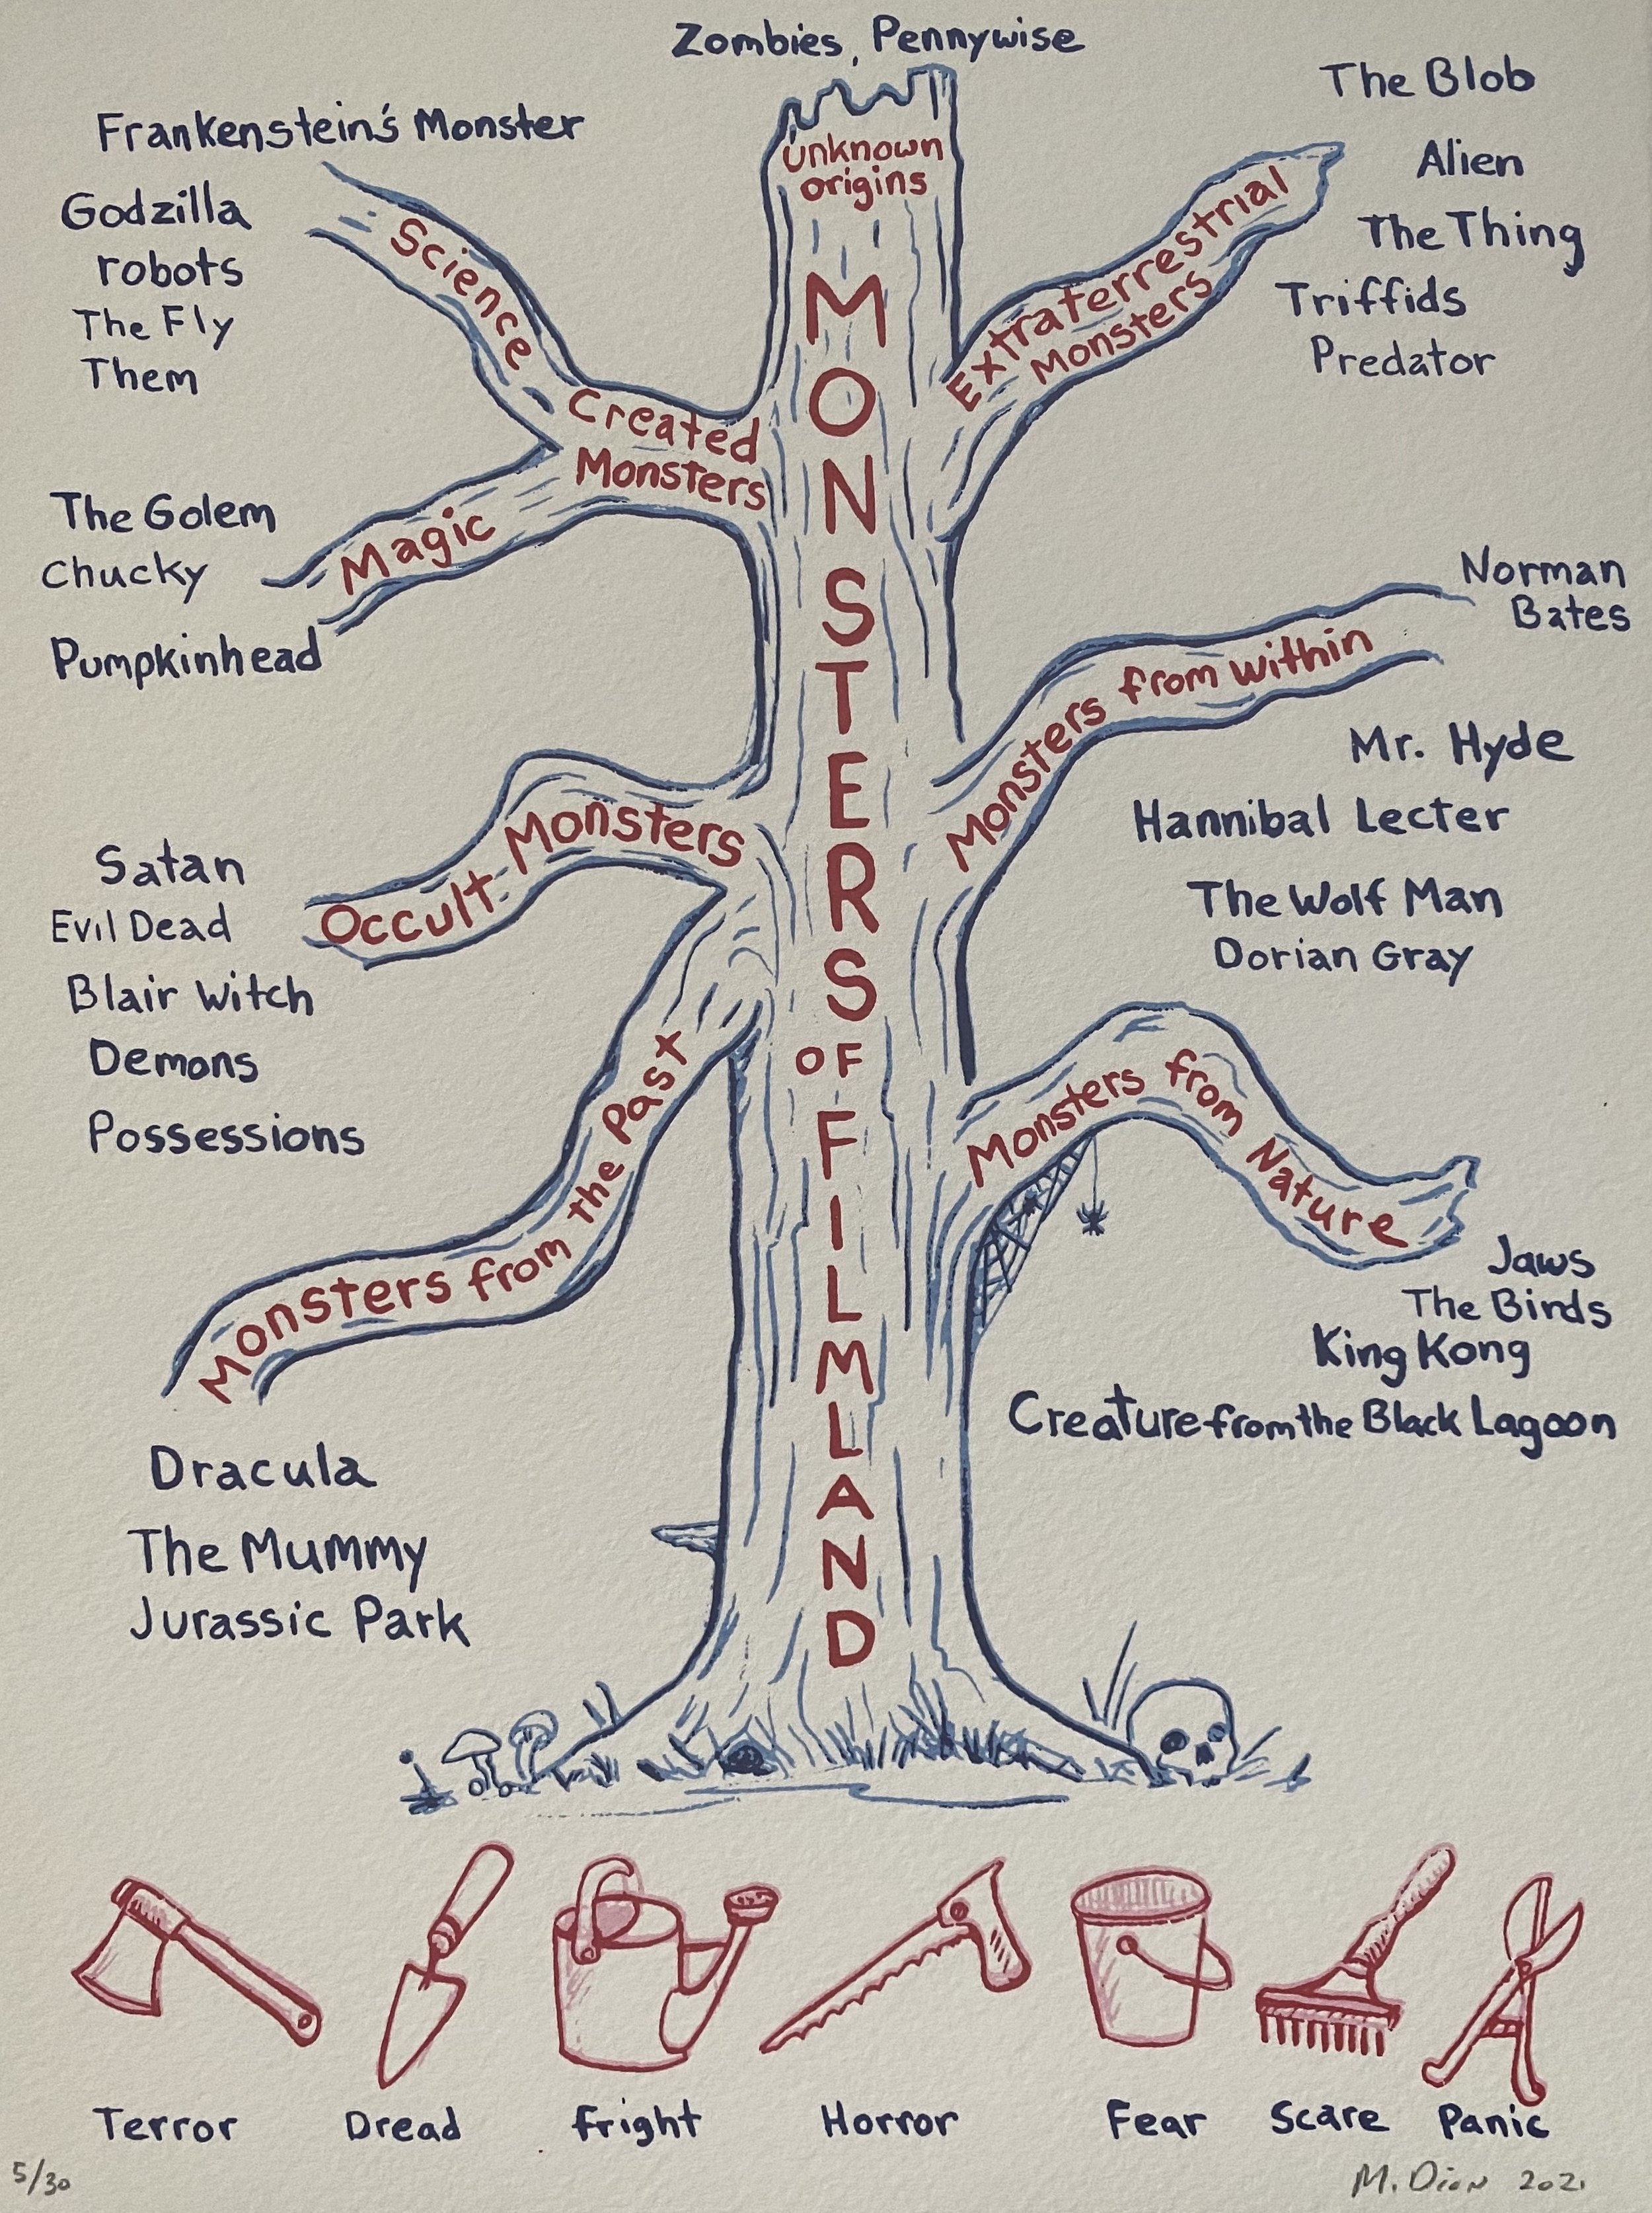 Zombies, Pennywise
unknown
origins
MONSTERS
OF
FILMLAND
Frankenstein's Monster
Godzilla
robots
The Fly
Them
Science
Created
Monsters
Magic
The Golem
Chucky
Pumpkinhead
Occult Monsters
Satan
Evil Dead
Blair Witch
Demons
Possessions
Monsters from the Past
Dracula
The Mummy
Jurassic Park
Extraterrestrial
Monsters
The Blob
Alien
The Thing
Triffids
Predator
Monsters from within
Norman
Bates
Mr. Hyde
Hannibal Lecter
The Wolf Man
Dorian Gray
Monsters from Nature
Jaws
The Birds
King Kong
Creature from the Black Lagoon
Terror
Dread
fright
Horror
Fear
Scare
Panic
5/30
M. Dion 2021